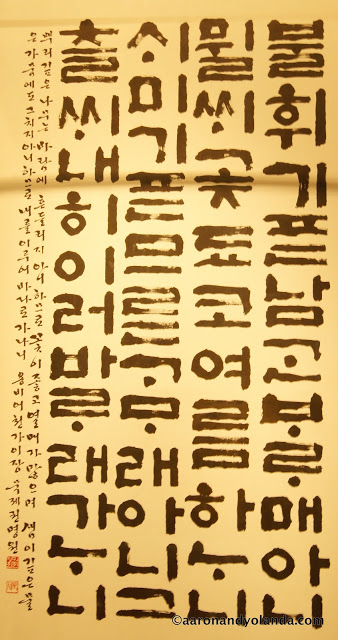 불휘기픈남ᄀᆞᆫᄇᆞᄅᆞ매아니
뮐ᄊᆡ곶됴코여름하ᄂᆞ니
ᄉᆡ미기픈므른ᄀᆞᄆᆞ래아니그
츨ᄊᆡ내히이러바ᄅᆞ래가ᄂᆞ니
뿌리 깊은 나무는 바람에 흔들리지 아니하므로 꽃이 좋고 열매가 많으며 샘이 깊은 물
은 가뭄에도 그치지 아니하므로 내를 이루어 바다로 가나니 용비어천가 이장
©aaronandyolanda.com